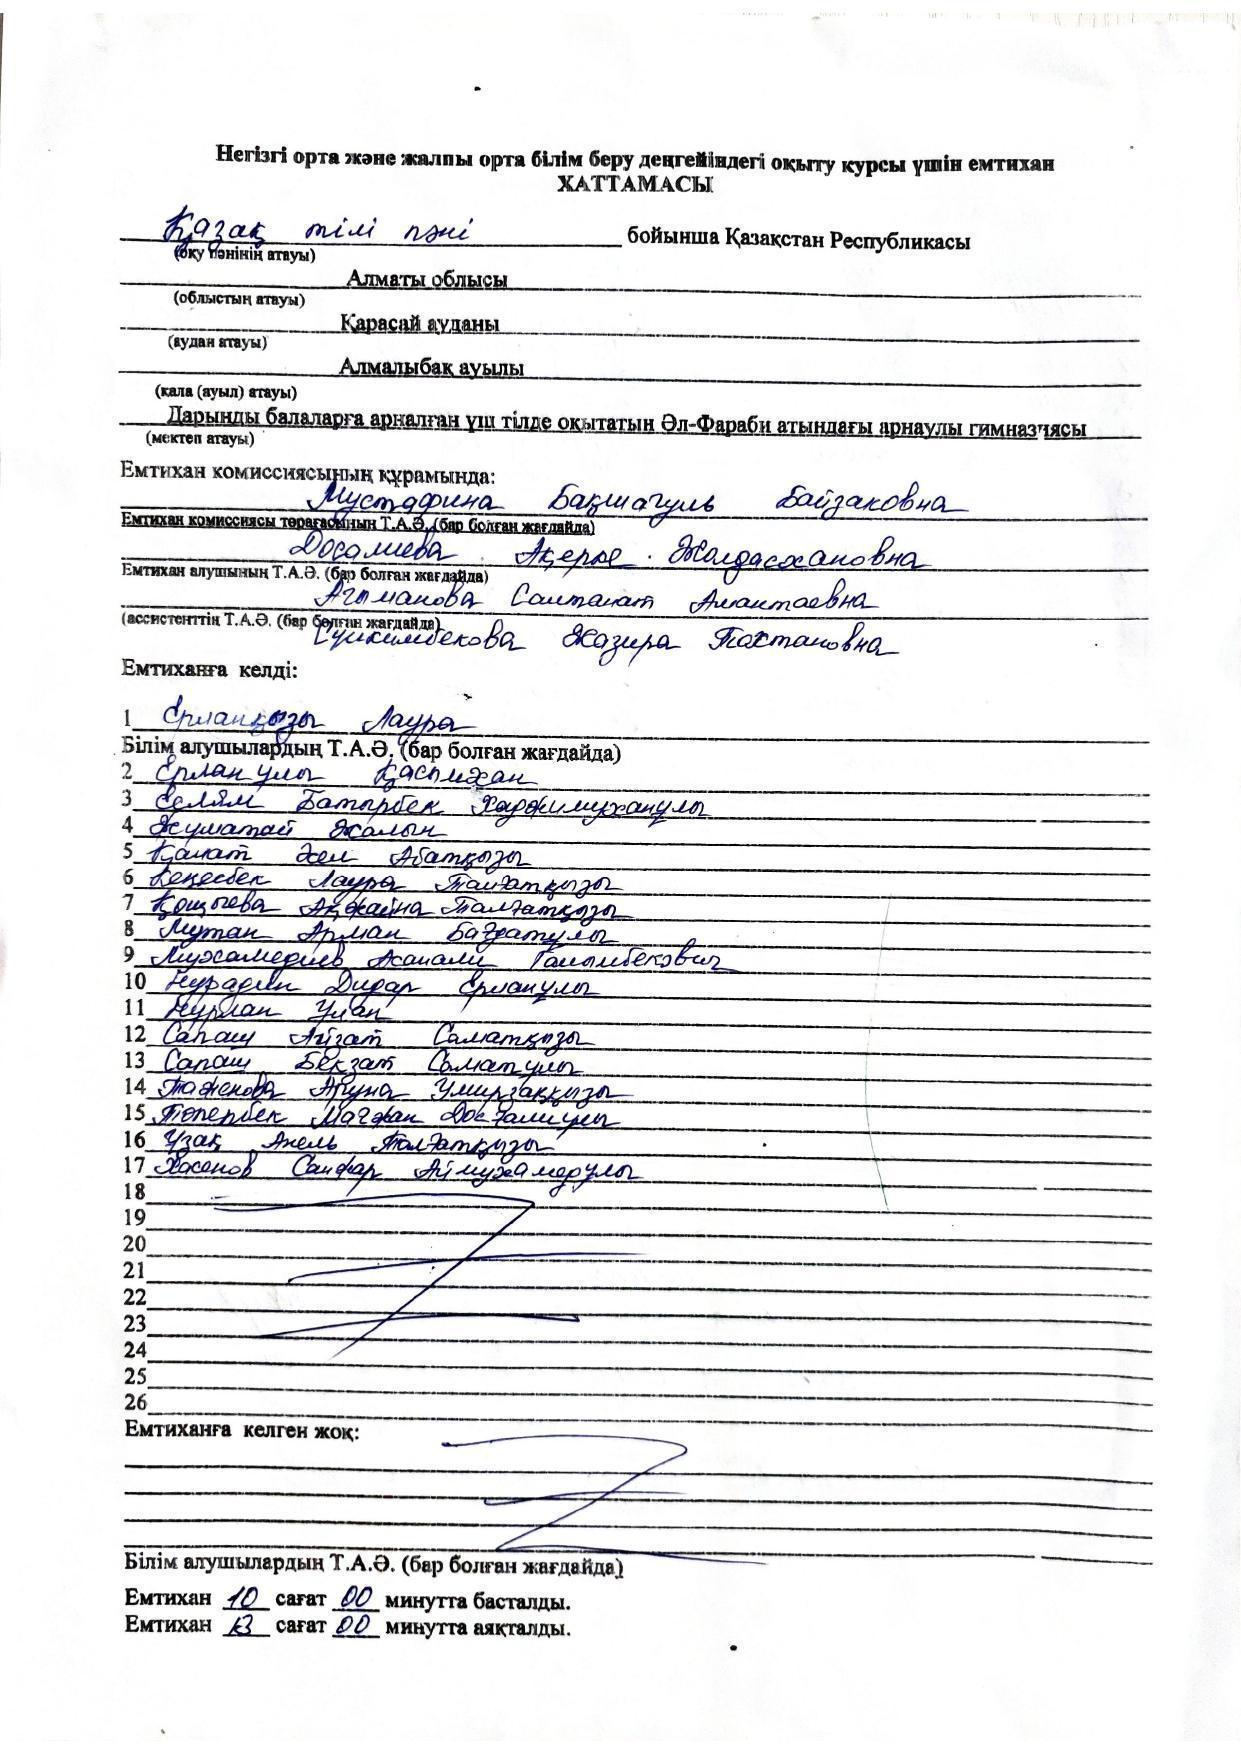 Негізгі орта және жалпы орта білім беру деңгейіндегі оқыту курсы үшін емтихан
ХАТТАМАСЫ
Қазақ тілі пәні бойынша Қазақстан Республикасы
(оқу пәнінің атауы)
Алматы облысы
(облыстың атауы)
Қарасай ауданы
(аудан атауы)
Алмалыбақ ауылы
(қала (ауыл) атауы)
Дарынды балаларға арналған үш тілде оқытатын Әл-Фараби атындағы арнаулы гимназиясы
(мектеп атауы)
Емтихан комиссиясының құрамында:
Мустафина Бақшагуль Байзаковна
Емтихан комиссиясы төрағасының Т.А.Ә. (бар болған жағдайда)
Досалиева Ақерке Жолдасхановна
Емтихан алушының Т.А.Ә. (бар болған жағдайда)
Агыманова Салтанат Амантаевна
(ассистенттің Т.А.Ә. (бар болған жағдайда)
Жазира Тохтановна
Емтиханға келді:
1 Ерланқызы Лаура
Білім алушылардың Т.А.Ә. (бар болған жағдайда)
2 Ерланұлы Қасымхан
3 Селям Батырбек Хаджимуханұлы
4 Жуматай Жалын
5 Қанат Әсел Абатқызы
6 Кеңесбек Лаура Талғатқызы
7 Қощыева Ақжайна Талғатқызы
8 Мутан Арман Бағдатұлы
9 Мухамедиев Асанали Ғалымбекович
10 Нурадин Дидар Ерланұлы
11 Нурлан Ұлан
12 Сапаш Айзат Саматқызы
13 Сапаш Бекзат Саматұлы
14 Таженова Аруна Умирзаққызы
15 Төлербек Мағжан Досғалиұлы
16 Ұзақ Анель Талғатқызы
17 Хасенов Санжар Аймухамедұлы
18
19
20
21
22
23
24
25
26
Емтиханға келген жоқ:
Білім алушылардың Т.А.Ә. (бар болған жағдайда)
Емтихан 10 сағат 00 минутта басталды.
Емтихан 13 сағат 00 минутта аяқталды.